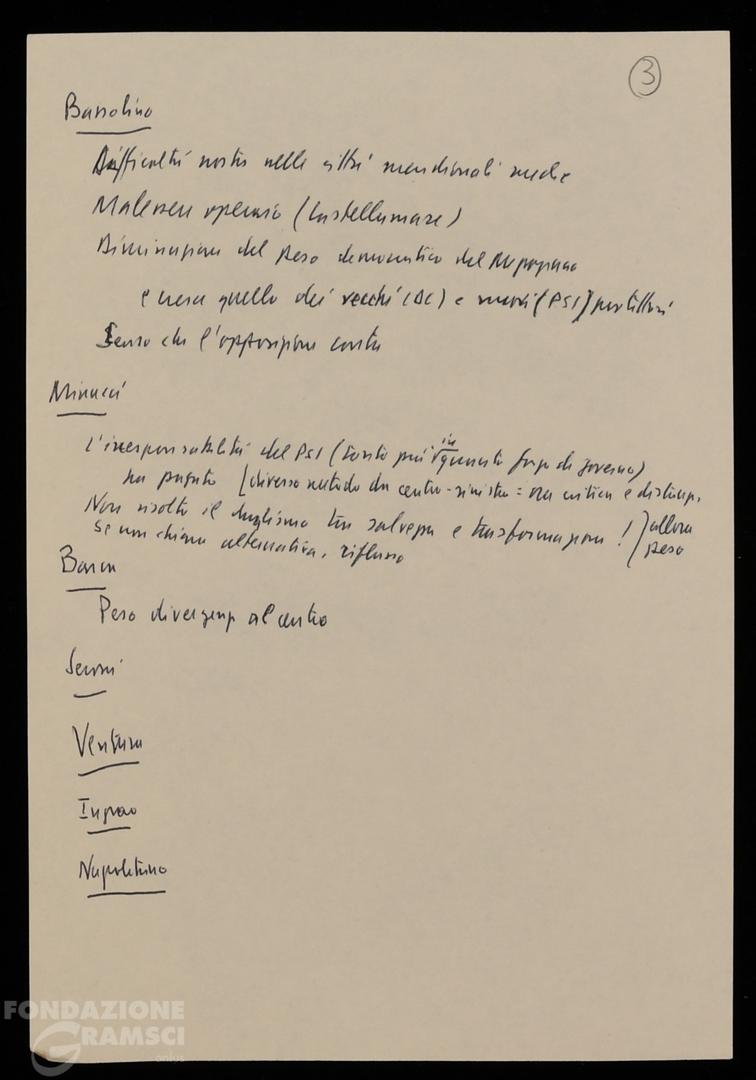 3
Bassolino
Difficoltà nostre nelle città meridionali medie
Malessere operaio (Castellamare)
Diminuzione del peso democratico del Mezzogiorno
e cresce quello dei vecchi (DC) e nuovi (PSI) protettori
Senso che l'opposizione conta
Minucci
L'irresponsabilità del PSI (tanto più in questa di governo)
ha pagato [diverso metodo da centro-sinistra = ora critica e
Non risolto il tra salvezza e trasformazione!) allora
Se non chiara alternativa, riflusso peso
Barca
Peso divergenze al centro
Seroni
Ventura
Ingrao
Napolitano
FONDAZIONE
GRAMSCI
onlus